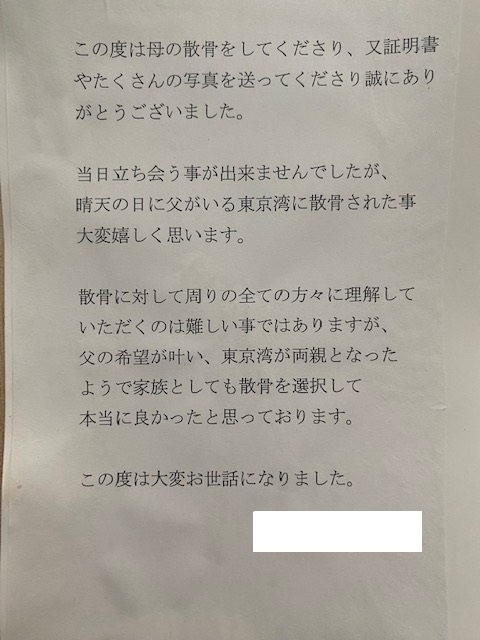 この度は母の散骨をしてくださり、又証明書
やたくさんの写真を送ってくださり誠にあり
がとうございました。
当日立ち会う事が出来ませんでしたが、
晴天の日に父がいる東京湾に散骨された事
大変嬉しく思います。
散骨に対して周りの全ての方々に理解して
いただくのは難しい事ではありますが、
父の希望が叶い、東京湾が両親となった
ようで家族としても散骨を選択して
本当に良かったと思っております。
この度は大変お世話になりました。